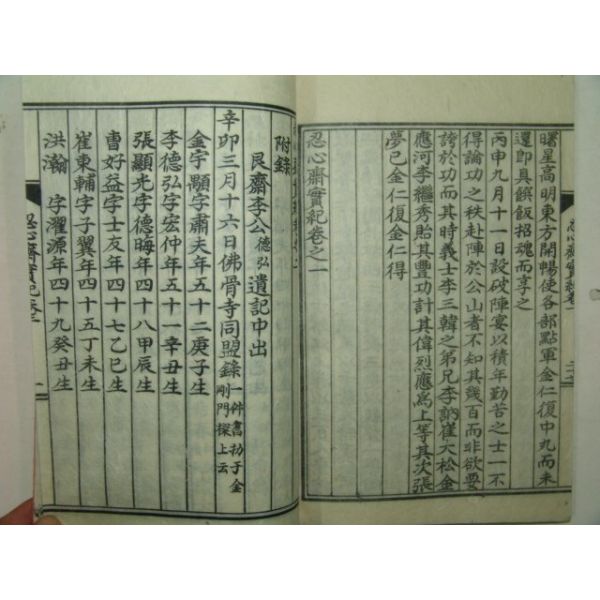 曙星高明東方開暢使各部點軍金仁復中丸而未
還卽具饌飯招魂而享之
丙申九月十一日設破陣宴以積年勤苦之士一不
得論功之秩赴陣於公山者不知其幾百而非欲要
誇於功而其時義士李三韓之弟兄李訥崔大松金
應河李繼秀貽其豐功計其偉烈應爲上等其次張
夢己金仁復金仁得
忍心齋實紀卷之一
附錄
艮齋李公德弘遺記中出
辛卯三月十六日佛骨寺同盟錄一件書
金宇顒字肅夫年五十二庚子生
李德弘字宏仲年五十一辛丑生
張顯光字德晦年四十八甲辰生
曺好益字士友年四十七乙巳生
崔東輔字子翼年四十五丁未生
洪瀚 字濯源年四十九癸丑生
忍心齋實紀卷二